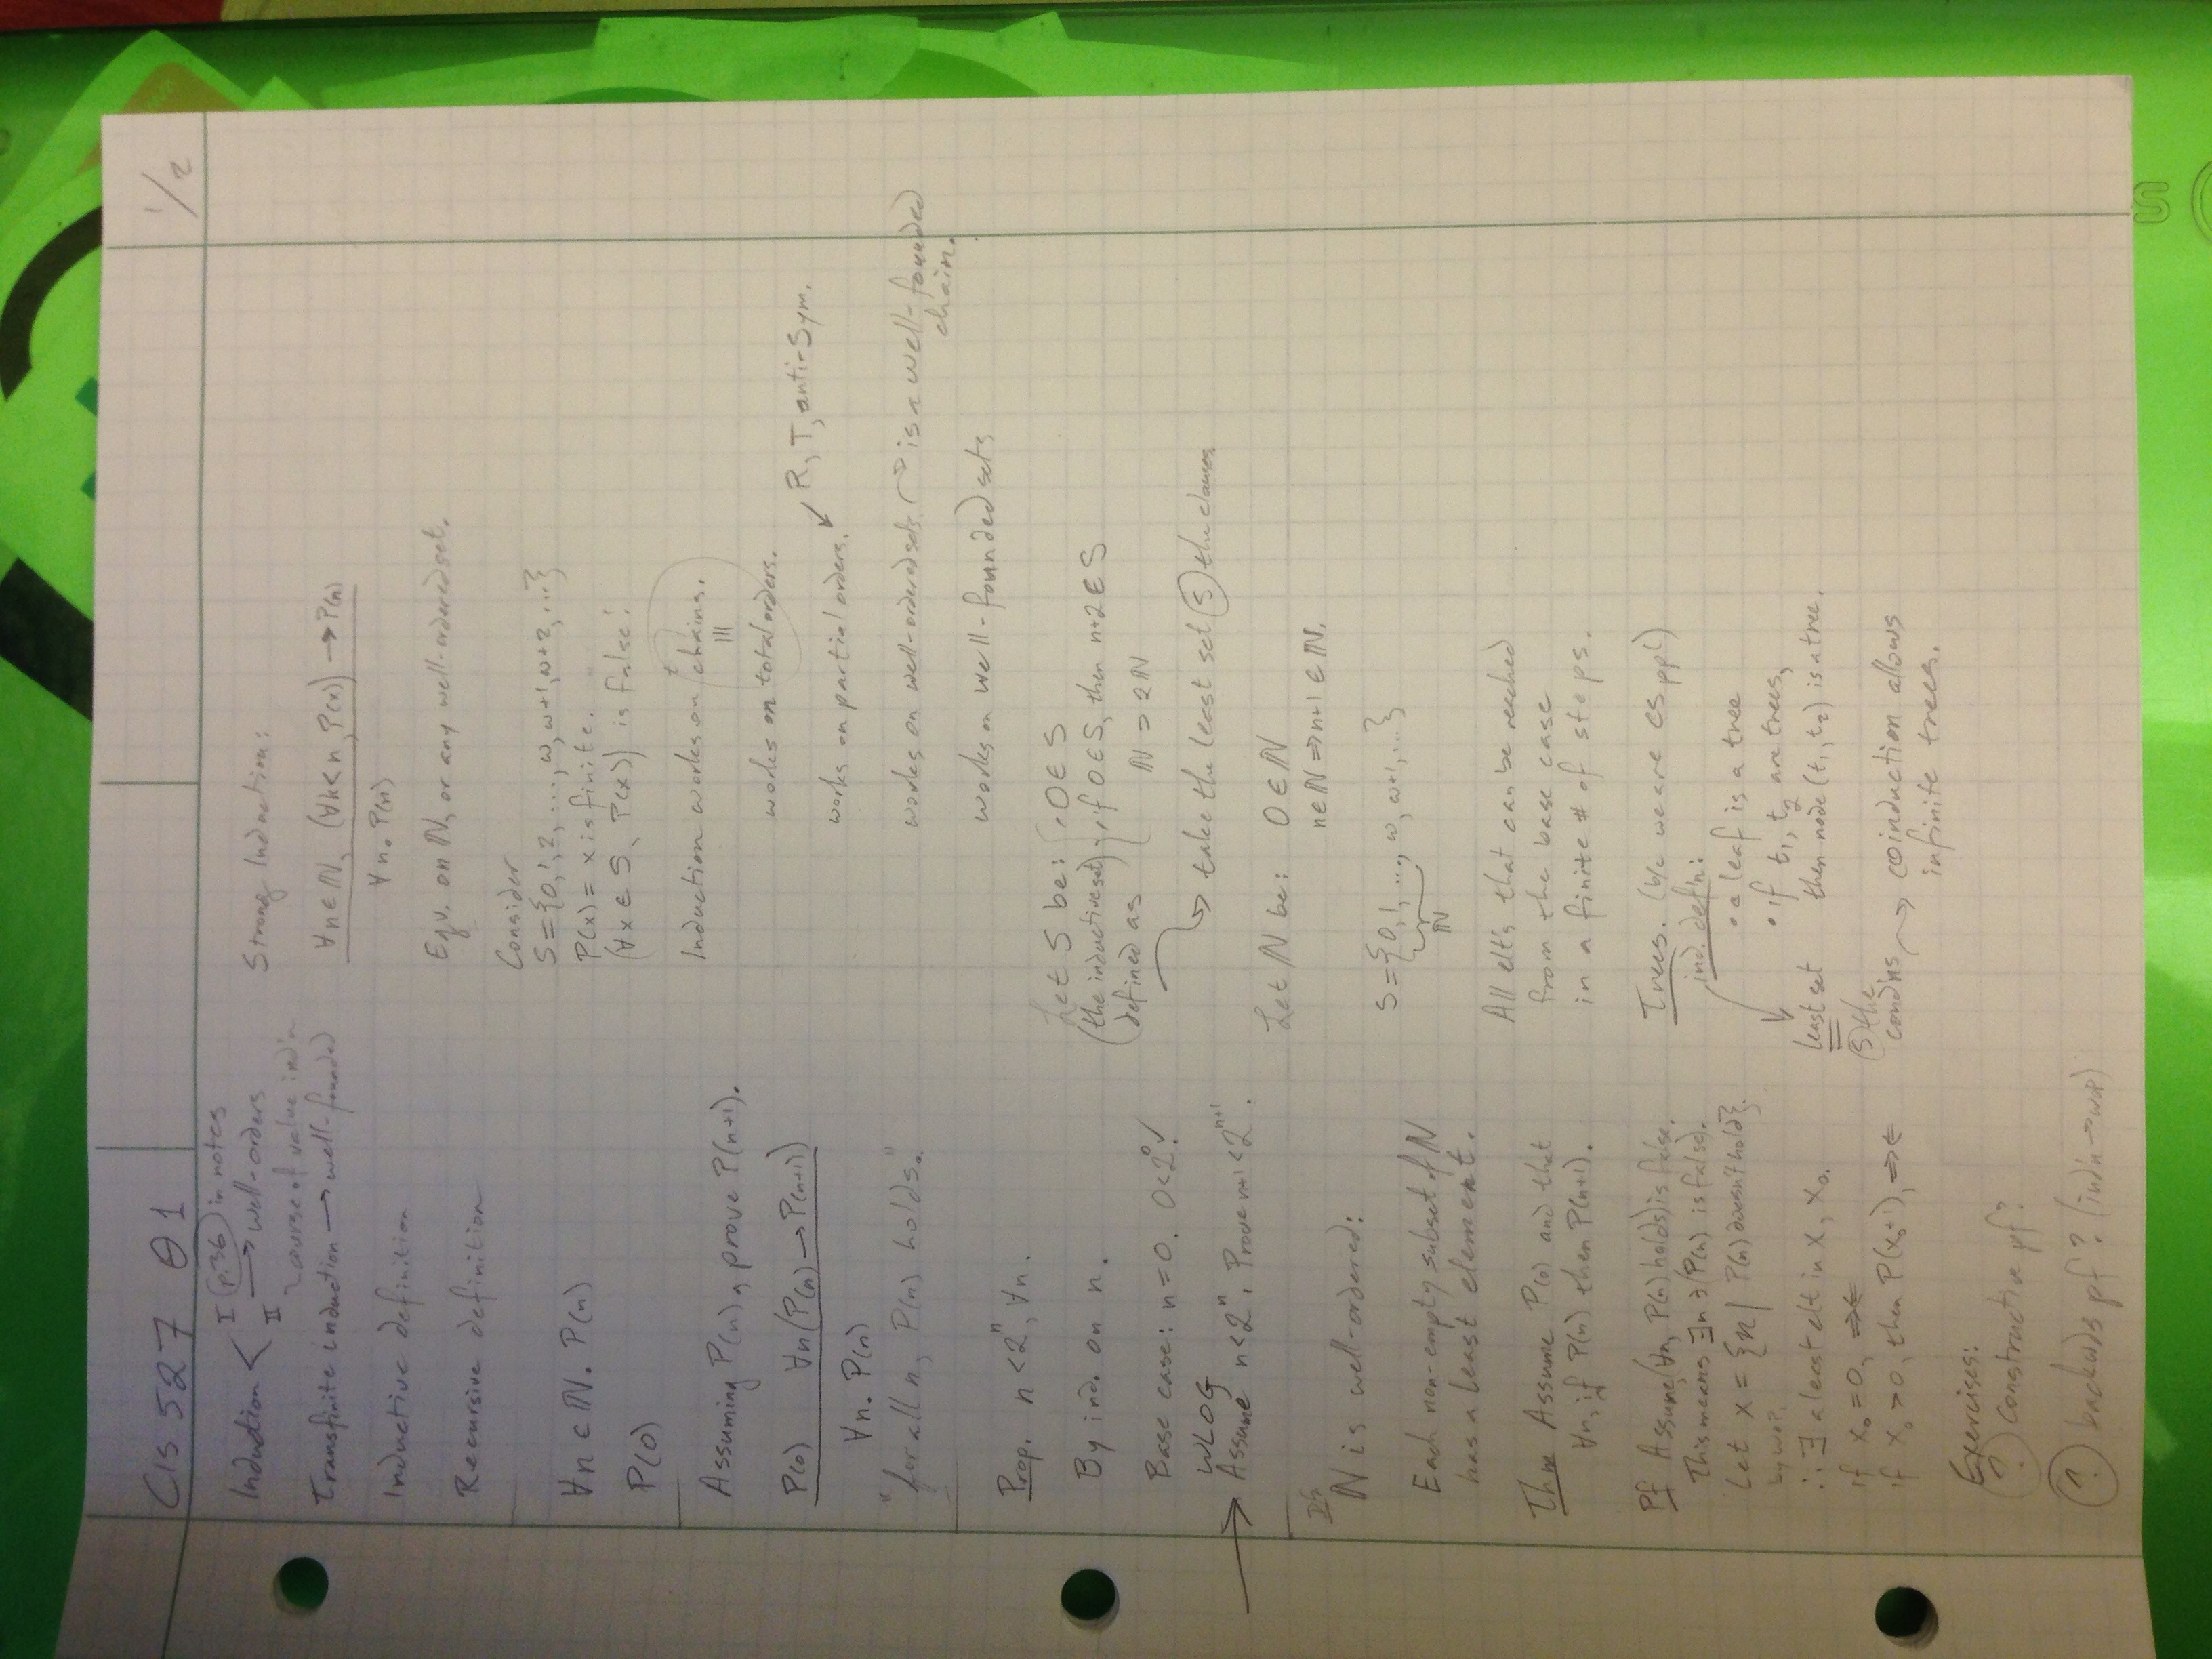 CIS 527 θ1
1/2
Induction < I (p.36) in notes
II → well-orders
course of value ind'n
Transfinite induction → well-founded
Inductive definition
Recursive definition
∀n ∈ ℕ. P(n)
P(0)
Assuming P(n), prove P(n+1).
P(0) ∀n(P(n) → P(n+1))
∀n. P(n)
"for all n, P(n) holds."
Prop. n < 2ⁿ, ∀n.
By ind. on n.
Base case: n = 0. 0 < 2⁰ ✓
WLOG
Assume n < 2ⁿ. Prove n+1 < 2ⁿ⁺¹.
ℕ is well-ordered:
Each non-empty subset of ℕ
has a least element.
Thm Assume P(0) and that
∀n, if P(n) then P(n+1).
Pf Assume (∀n, P(n) holds) is false.
This means ∃n ∋ (P(n) is false).
Let x = {n | P(n) doesn't hold}.
by WOP,
∴ ∃ a least elt in x, x₀.
if x₀ = 0, ⇒⇐
if x₀ > 0, then P(x₀+1), ⇒⇐
Exercises:
? Constructive pf?
? backwds pf? (ind'n → wop)
Strong Induction:
∀n ∈ ℕ, (∀k<n, P(x)) → P(n)
∀n. P(n)
Eqv. on ℕ, or any well-ordered set.
Consider
S = {0, 1, 2, ..., ω, ω+1, ω+2, ...}
P(x) = x is finite.
(∀x ∈ S, P(x)) is false!
Induction works on chains.
|||
works on total orders.
works on partial orders. ↙ R, T, anti-Sym.
works on well-ordered sets. → is a well-founded
chain.
works on well-founded sets
Let S be: { · 0 ∈ S
(the inductive set) · if 0 ∈ S, then n+2 ∈ S
defined as ℕ → 2ℕ
→ take the least set (S) the clauses
Let ℕ be: 0 ∈ ℕ
n ∈ ℕ ⇒ n+1 ∈ ℕ.
S = {0, 1, ..., ω, ω+1, ...}
ℕ
All elt's that can be reached
from the base case
in a finite # of steps.
Trees. (b/c we are CS ppl)
ind. def'n:
• a leaf is a tree
• if t₁, t₂ are trees,
then node (t₁, t₂) is a tree.
least set
(S) the
cond'ns → coinduction allows
infinite trees.